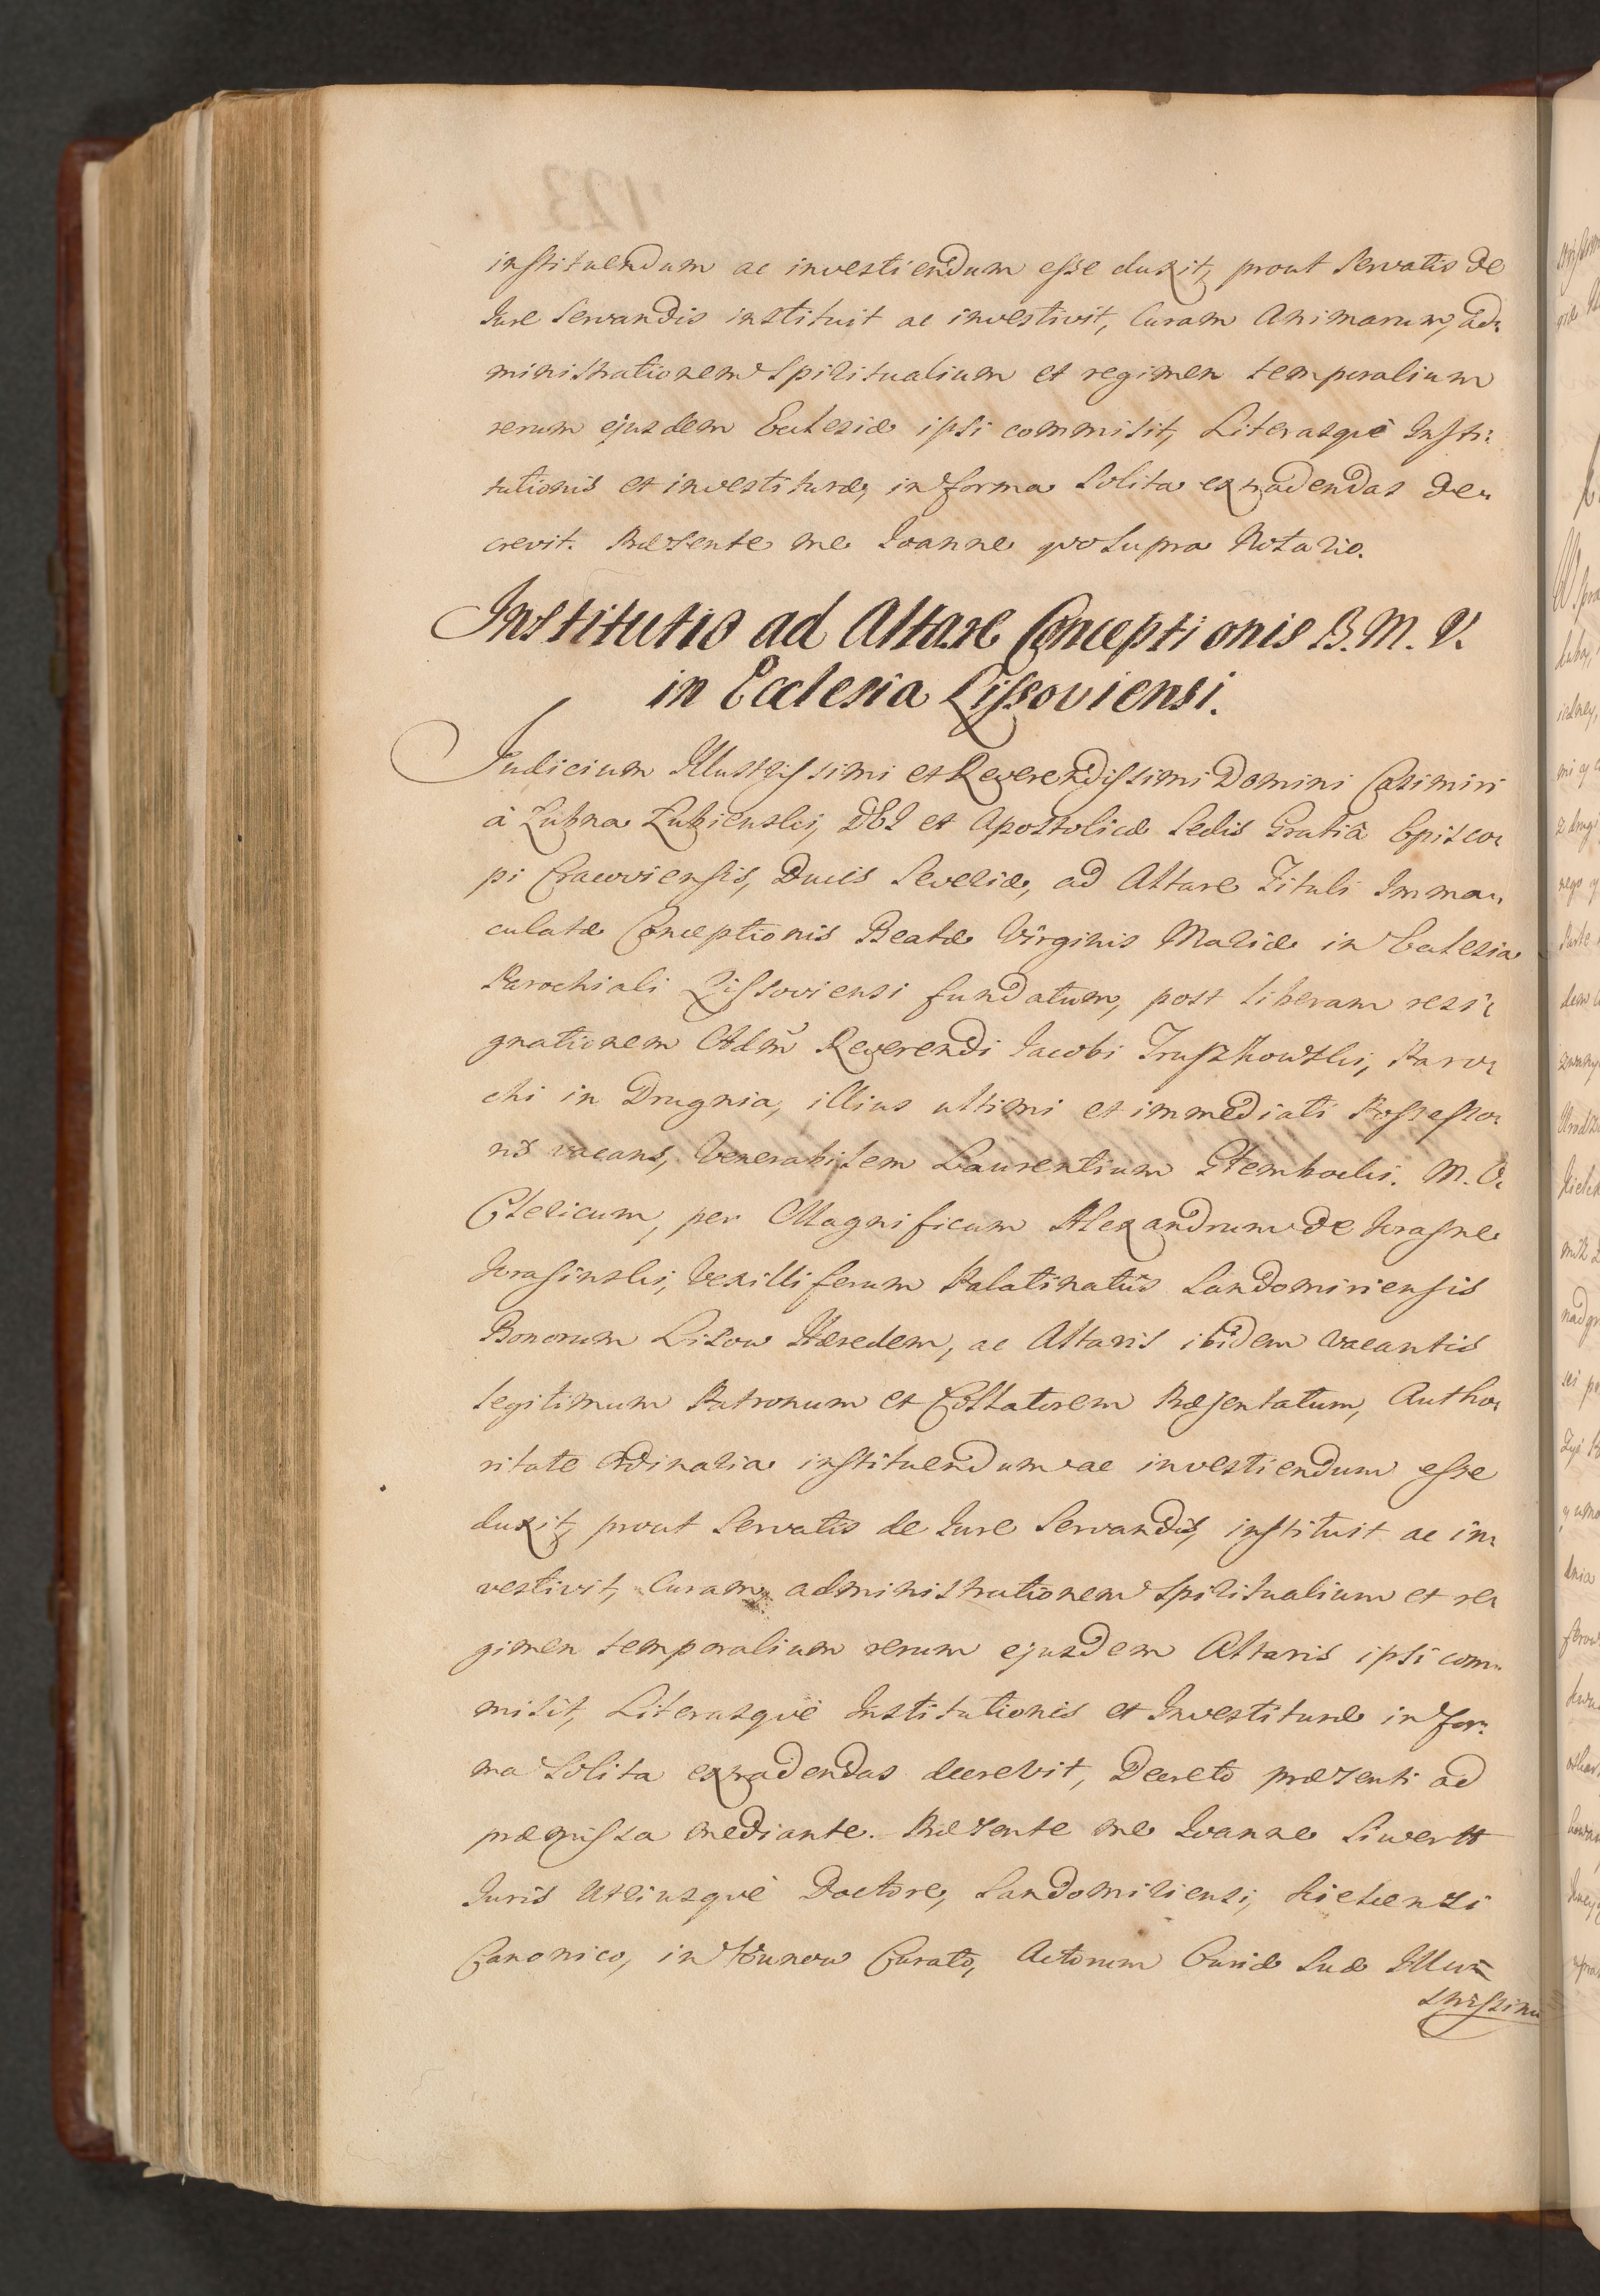 instituendum ac investiendum esse duxit, prout Servatis de
Jure Servandis instituit ac investivit, Curam Animarum, ad:
ministrationem Spiritualium et regimen temporalium
rerum ejusdem Ecclesiæ ipsi commisit, Literasquè Insti:
tutionis et investituræ, in forma Solita extradendas de:
crevit. Præsente me Joanne quo Supra Notario.
Institutio ad Altare Conceptionis B. M. V.
in Ecclesia Lissoviensi.
Judicium Illustrissimi et Reverendissimi Domini Casimiri
à Łubna Łubienski, DEI et Apostolicæ Sedis Gratiâ Episco:
pi Cracoviensis, Ducis Severiæ, ad Altare Tituli Imma:
culatæ Conceptionis Beatæ Virginis Mariæ in Ecclesia
Parochiali Lissoviensi fundatum, post liberam resi:
gnationem Adm Reverendi Jacobi Truszkowski, Paro:
chi in Drugnia, illius ultimi et immediati Possesso:
ris vacans, Venerabilem Laurentium M. O:
Clericum, per Magnificum Alexandrum de Krasne
Krasinski, Vexilliferum Palatinatûs Sandomiriensis
Bonorum Lisow Hæredem, ac Altaris ibidem vacantis
legitimum Patronum et Collatorem Præsentatum, Autho:
ritate Ordinaria instituendum ac investiendum esse
duxit, prout Servatis de Jure Servandis, instituit ac in:
vestivit, Curam, administrationem Spiritualium et re:
gimen temporalium rerum ejusdem Altaris ipsi com:
misit, Literasquè Institutionis et Investituræ in for:
ma Solita extradendas decrevit, Decreto præsenti ad
præmissa mediante. Præsente me Joanne Siwertt
Juris Utriusquè Doctore, Sandomiriensi, Kielcensi
Canonico, in Curato, Actorum Curiæ Suæ Illu:
strissimæ